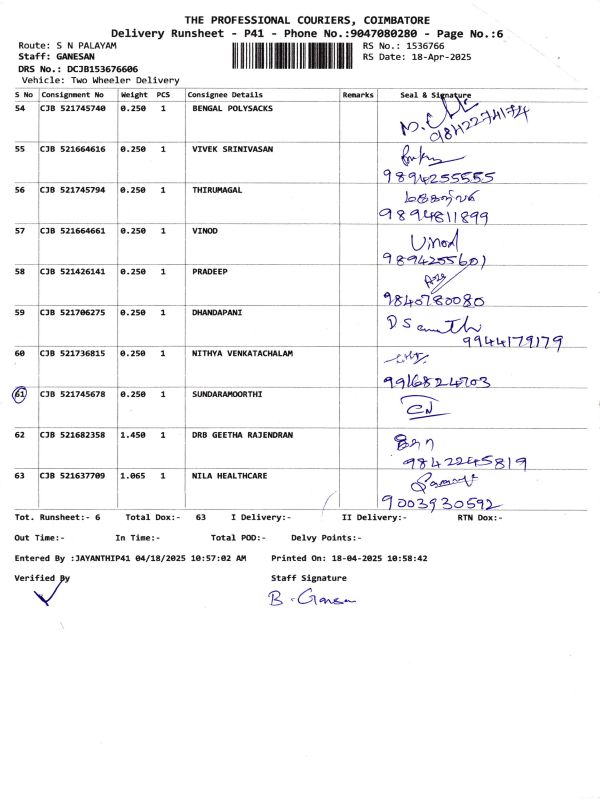 THE PROFESSIONAL COURIERS, COIMBATORE
Delivery Runsheet - P41 - Phone No.:9047080280 - Page No.:6
Route: S N PALAYAM RS No.: 1536766
Staff: GANESAN RS Date: 18-Apr-2025
DRS No.: DCJB153676606
Vehicle: Two Wheeler Delivery
S No Consignment No Weight PCS Consignee Details Remarks Seal & Signature
54 CJB 521745740 0.250 1 BENGAL POLYSACKS
9842274174
55 CJB 521664616 0.250 1 VIVEK SRINIVASAN
9894255555
56 CJB 521745794 0.250 1 THIRUMAGAL
9894811899
57 CJB 521664661 0.250 1 VINOD Vinod
9894255601
58 CJB 521426141 0.250 1 PRADEEP
9840780080
59 CJB 521706275 0.250 1 DHANDAPANI
9944179179
60 CJB 521736815 0.250 1 NITHYA VENKATACHALAM
9916824703
61 CJB 521745678 0.250 1 SUNDARAMOORTHI
62 CJB 521682358 1.450 1 DRB GEETHA RAJENDRAN
9842245819
63 CJB 521637709 1.065 1 NILA HEALTHCARE
9003930592
Tot. Runsheet:- 6 Total Dox:- 63 I Delivery:- II Delivery:- RTN Dox:-
Out Time:- In Time:- Total POD:- Delvy Points:-
Entered By :JAYANTHIP41 04/18/2025 10:57:02 AM Printed On: 18-04-2025 10:58:42
Verified By Staff Signature